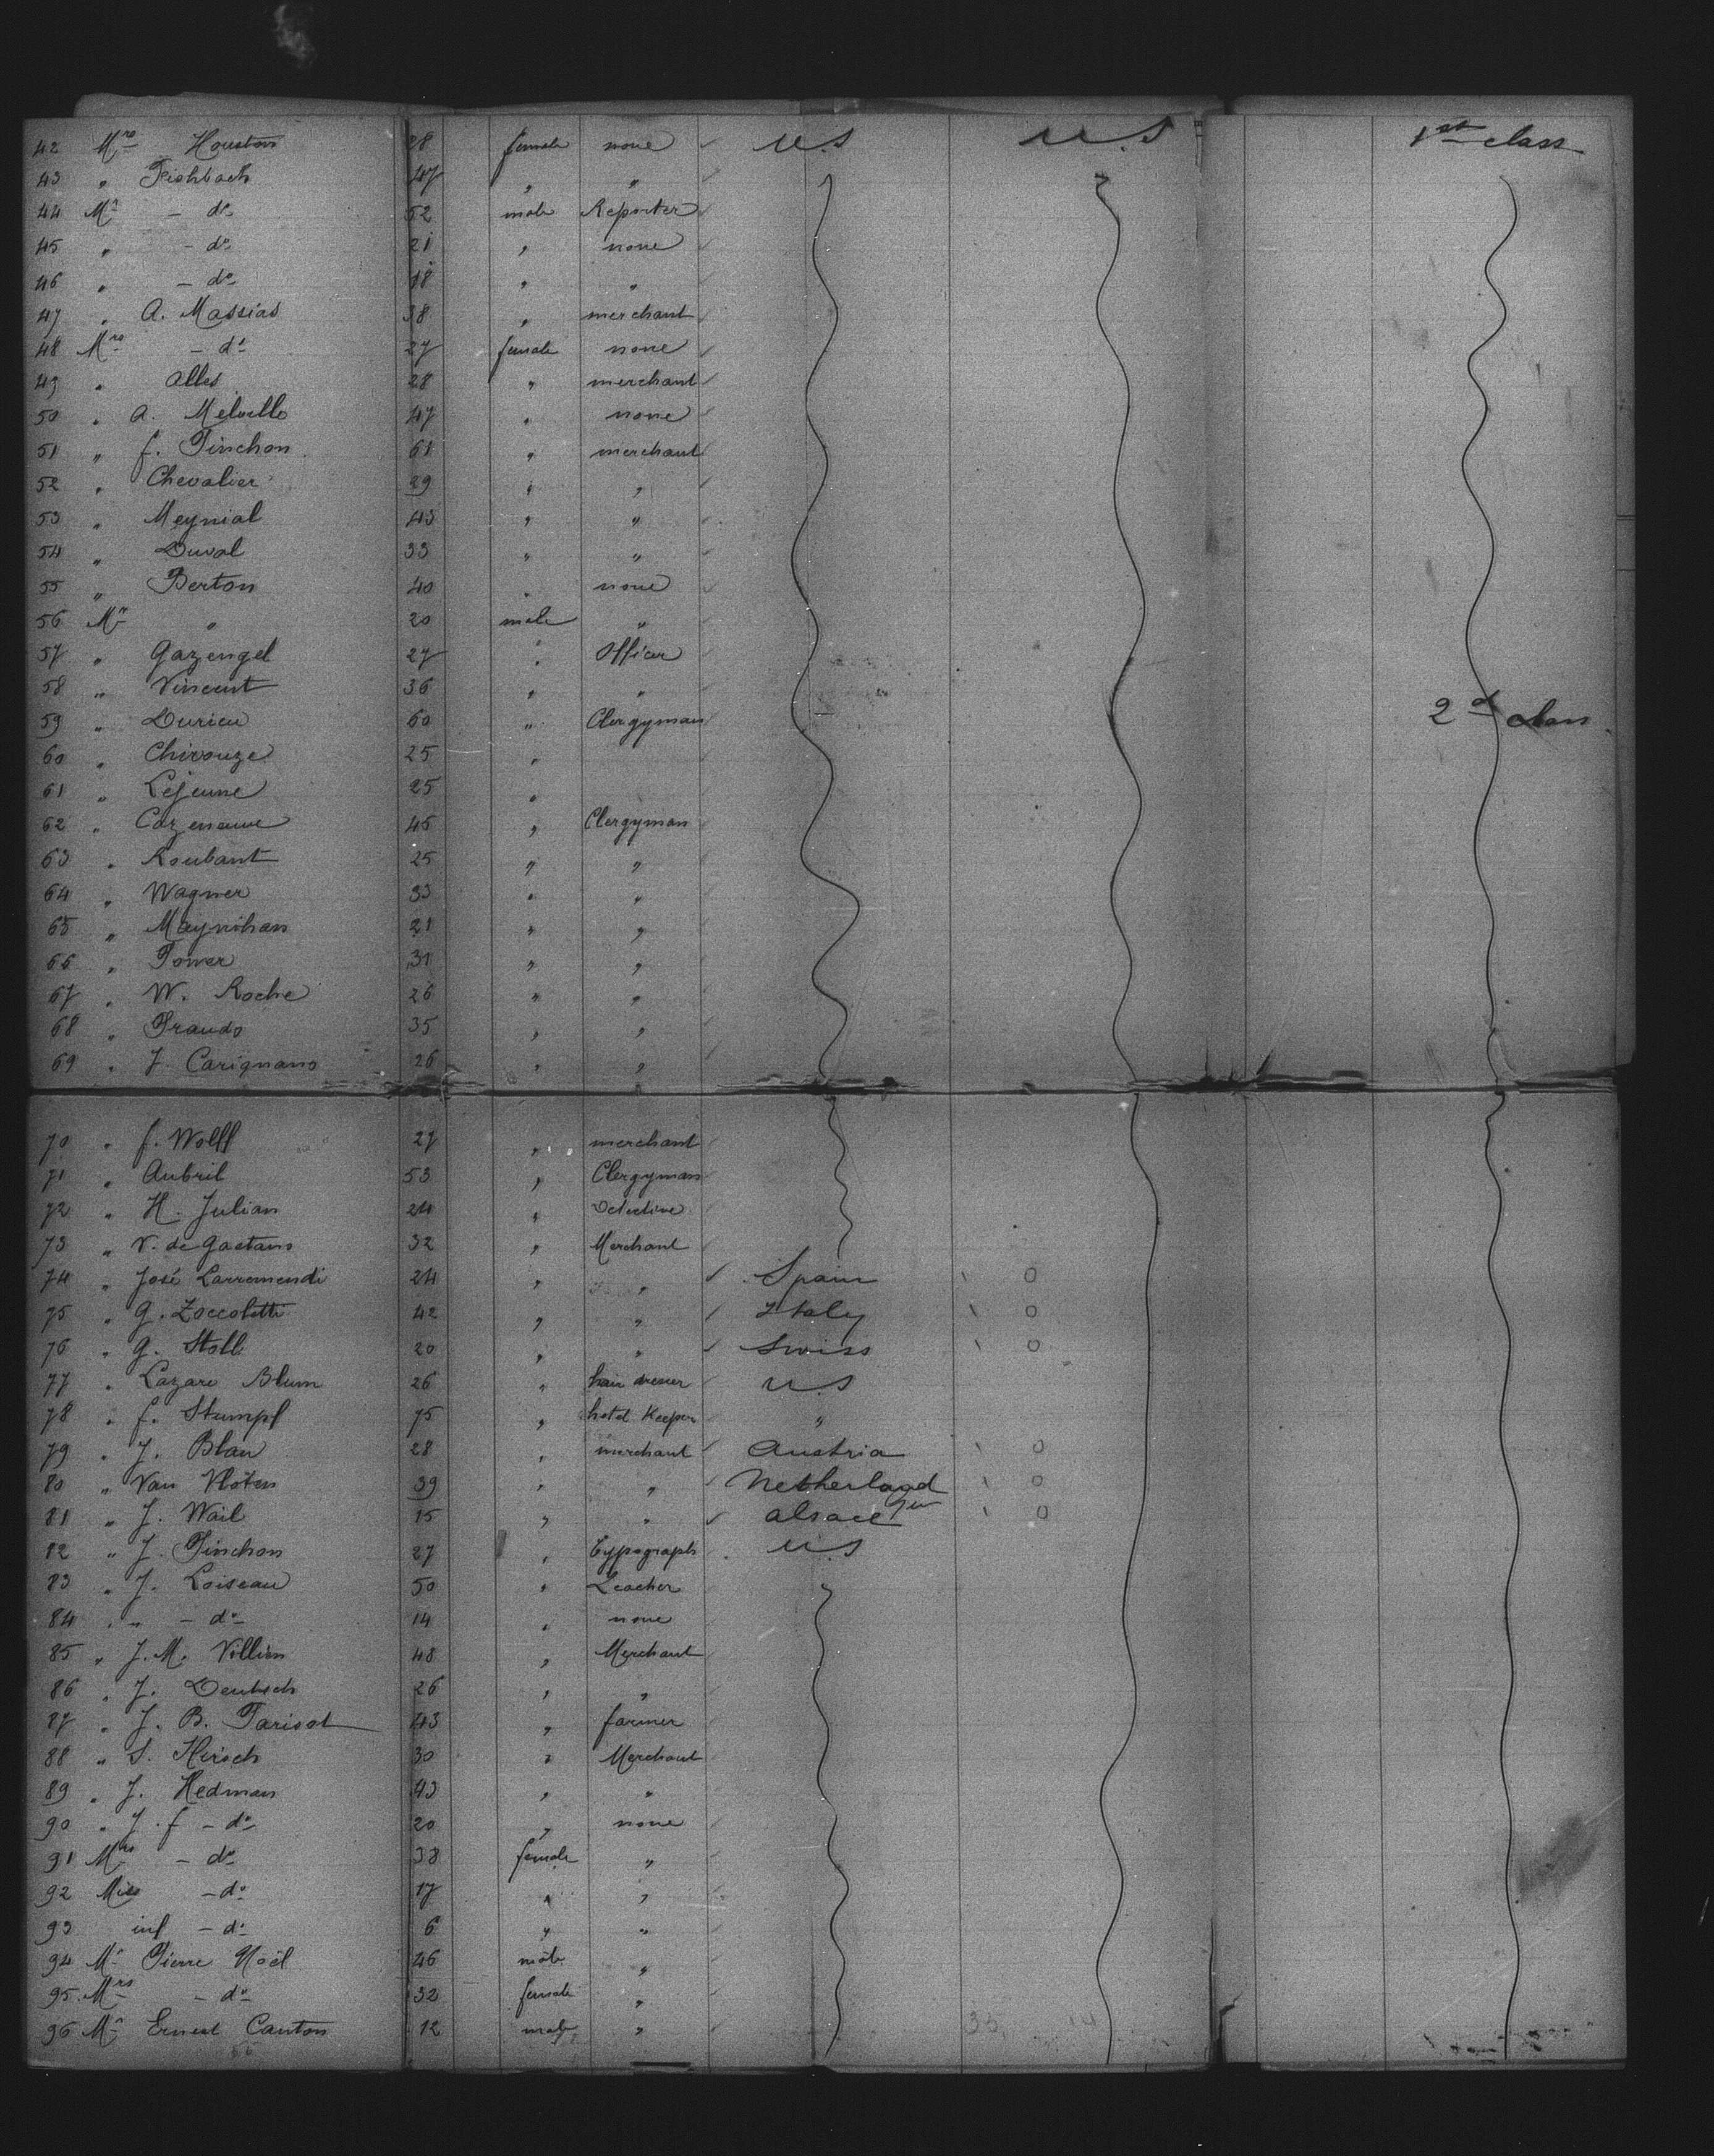 42 Mrs Houston 28 female none U.S U.S 1st class
43 " Fishbach 47 " "
44 Mr — do 52 male Reporter
45 " — do 21 " none
46 " — do 18 " "
47 " A. Massias 38 " merchant
48 Mrs — do 27 female none
49 " Alles 28 " merchant
50 " A. Melville 47 " none
51 " f. Pinchon 61 " merchant
52 " Chevalier 29 " "
53 " Meynial 43 " "
54 " Duval 33 " "
55 " Berton 40 " none
56 Mr " 20 male "
57 " Gazengel 27 " Officer
58 " Vincent 36 " "
59 " Durieu 60 " Clergyman 2d class
60 " Chirouze 25 "
61 " Lejeune 25 "
62 " Cazeneuve 45 " Clergyman
63 " Roubant 25 " "
64 " Wagner 33 " "
65 " Maynihan 21 " "
66 " Power 31 " "
67 " W. Roche 26 " "
68 " Prando 35 " "
69 " J. Carignano 26 " "
70 " f. Wolff 27 " merchant
71 " Aubril 53 " Clergyman
72 " H. Julian 24 " Detective
73 " V. de Gaetano 32 " Merchant
74 " José Larromendi 24 " " Spain O
75 " G. Zoccoletti 42 " " Italy O
76 " G. Stoll 20 " " Swiss O
77 " Lazare Blum 26 " hair dresser U.S
78 " f. Stumpf 75 " hotel Keeper "
79 " J. Blau 28 " merchant Austria O
80 " Van Vloten 39 " " Netherland O
81 " J. Wail 15 " " Alsace Ger O
82 " J. Pinchon 27 " typograph U.S
83 " J. Loiseau 50 " Teacher
84 " " — do 14 " none
85 " J. M. Villien 48 " Merchant
86 " J. Deutsch 26 " "
87 " J. B. Parisot 43 " farmer
88 " S. Hirsch 30 " Merchant
89 " J. Hedman 43 " "
90 " J. f — do 20 " none
91 Mrs — do 38 female "
92 Miss — do 17 " "
93 inf — do 6 " "
94 Mr Pierre Noël 46 male "
95 Mrs — do 32 female "
96 Mr Ernest Canton 12 male "